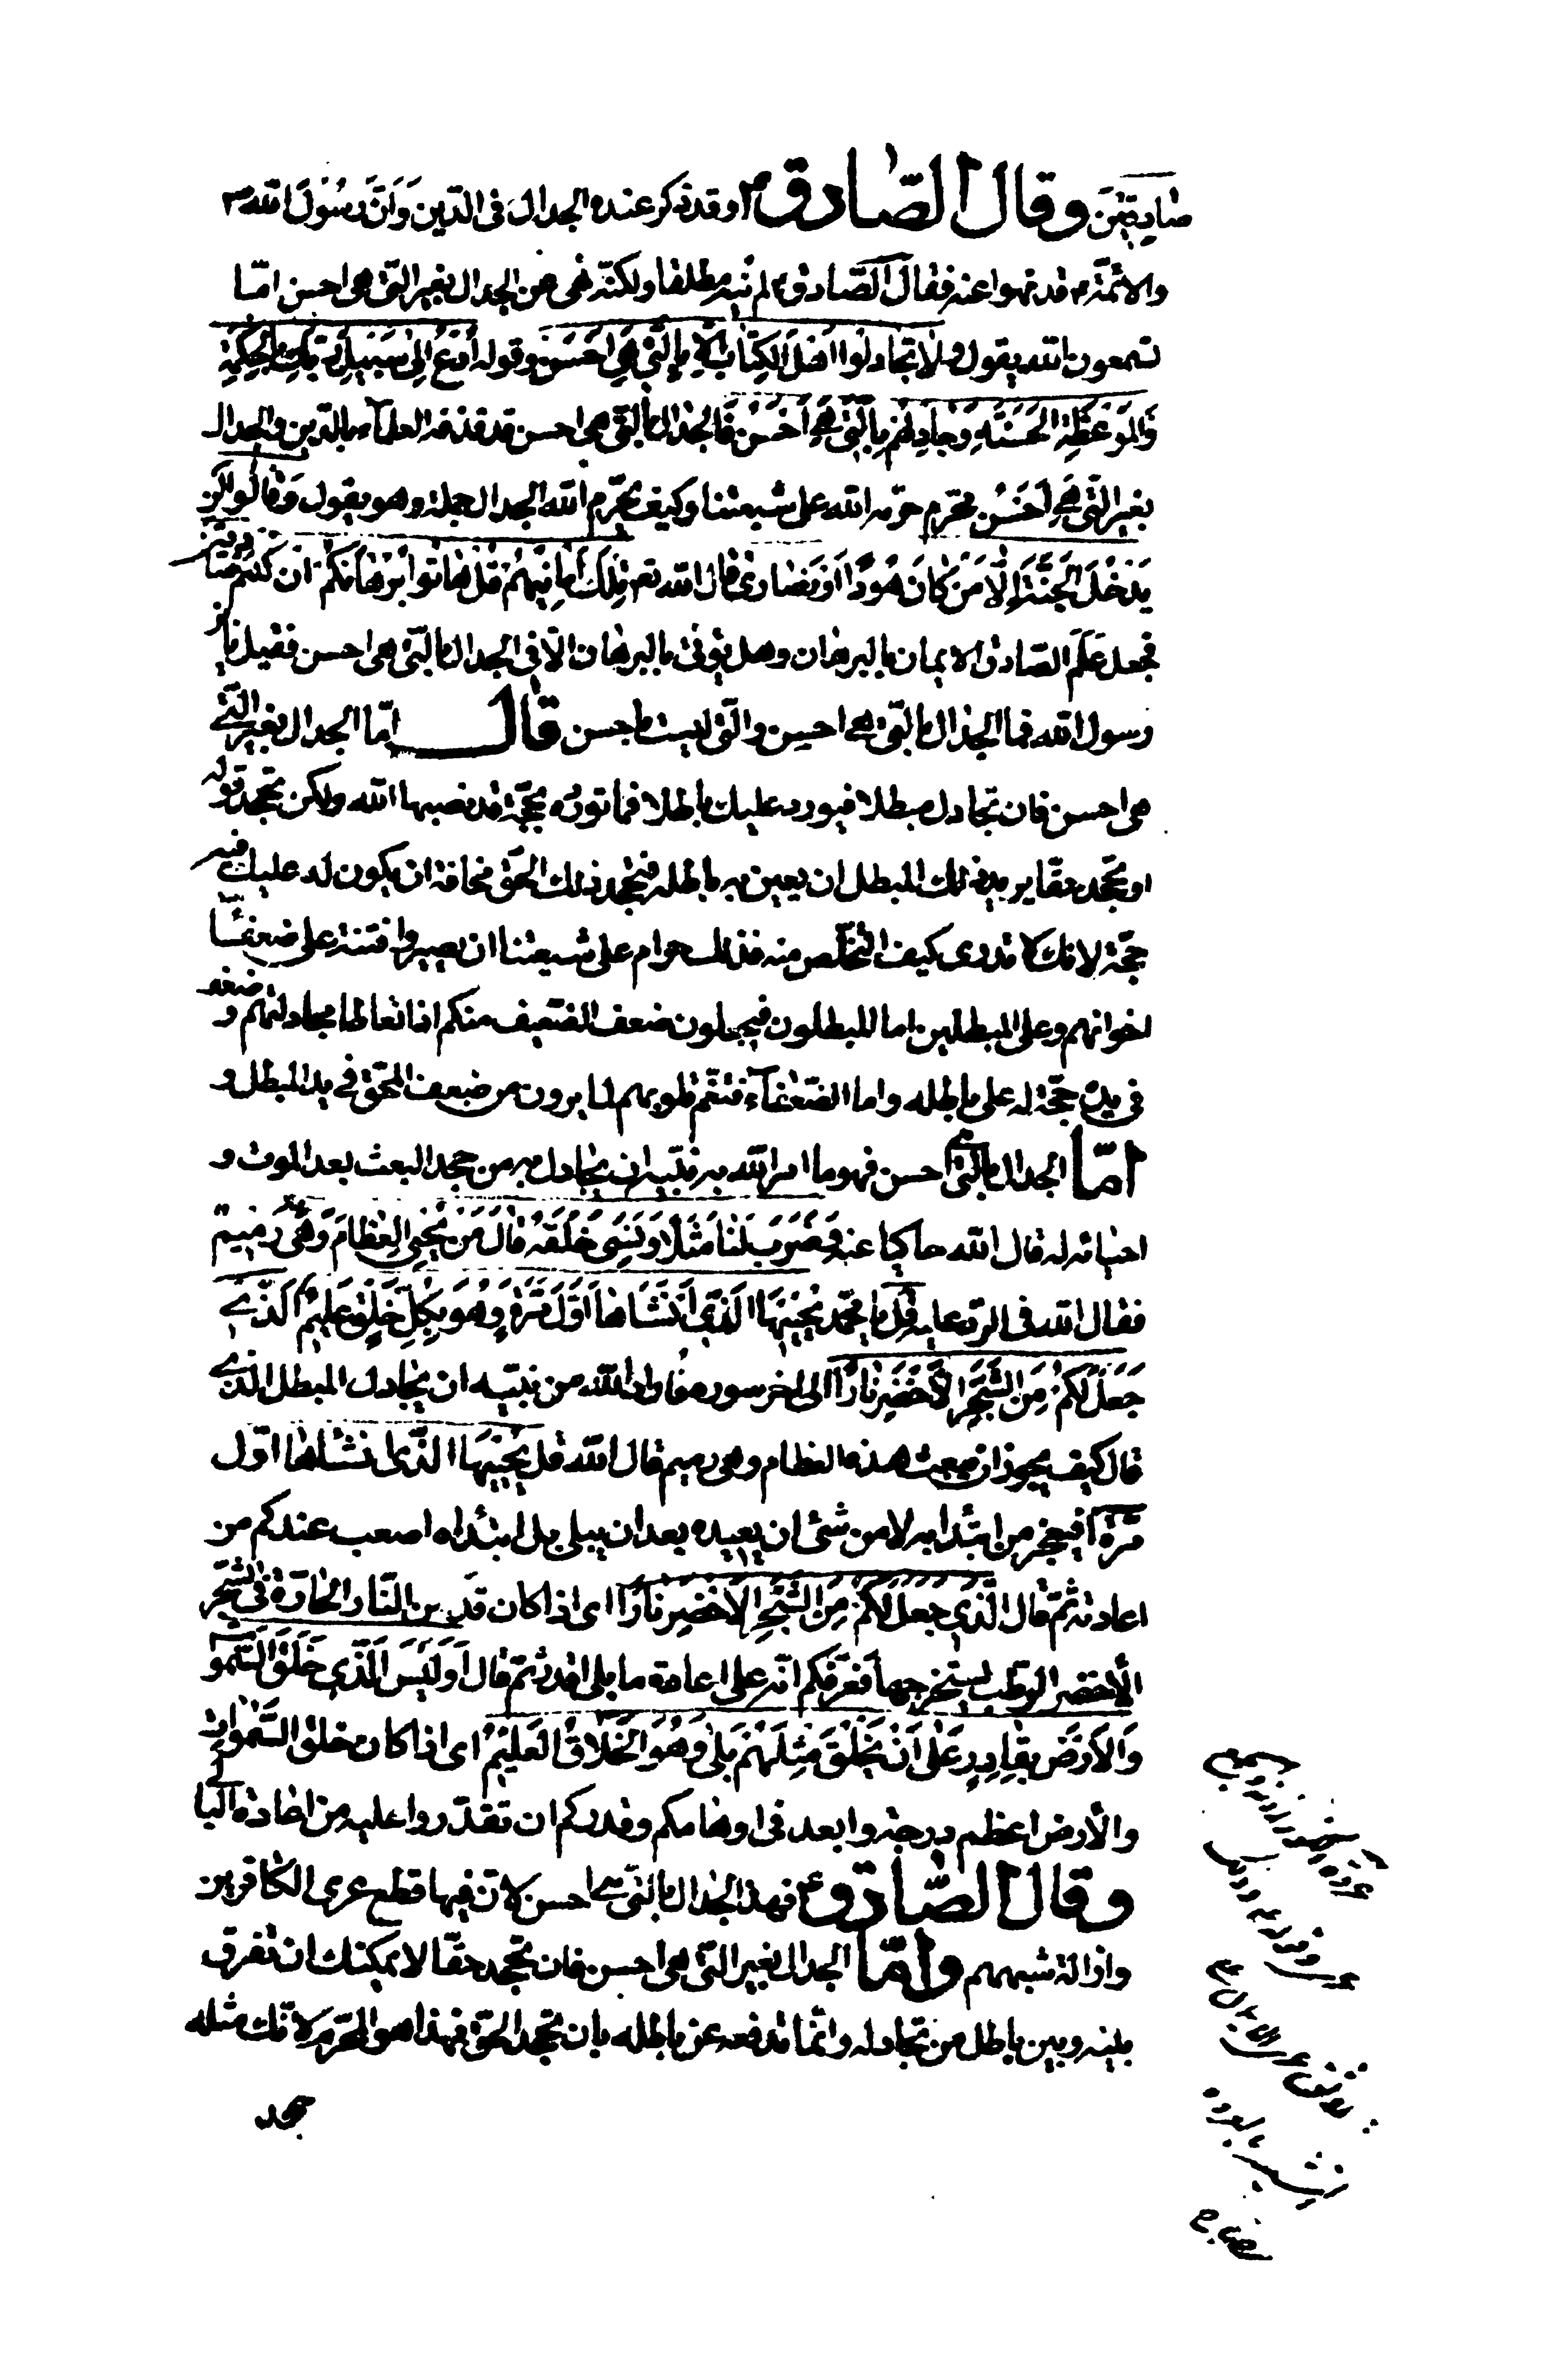 صَادِقِيْنَ وقال الصّادق ع وقد ذكر عنده الجدال فى الدّين وَاَنَّ رَسُوْلَ اللّه ص
والائمّة ع قد نهوا عنه فقال الصّادق ع لم ينه مطلقا ولكنّه نهى عن الجدال بغير الّتى هى احسن امّا
تسمعون اللّه يقول ولا تجادلوا اَهْلَ الكِتَابِ اِلّا بِالَّتِى هِىَ اَحْسَن وقوله اُدْعُ اِلى سَبِيْلِ رَبِّكَ بِالحِكْمَةِ
وَالمَوْعِظَةِ الحَسَنَةِ وَجَادِلْهُمْ بِالَّتِى هِىَ اَحْسَنُ فَالجدال بالّتى هى احسن قد قرنه العلمآء بالدّين والجدال
بغير الّتى هِىَ اَحْسَنُ محرّم حرّمه اللّه على شيعتنا وكيف يحرّم اللّه الجدال جملة وهو يقول وَقالُوا لَنْ
يَدْخُلَ الجَنَّةَ اِلّا مَنْ كَانَ هُوْدًا اَوْ نَصَارى قال اللّه تع تِلْكَ اَمانِيُّهُمْ قُلْ هَاتُوا بُرْهَانَكُمْ ان كنتم صادقين
فجعل عَلَم الصّادق الايمان بالبرهان وهل يؤتى بالبرهان الّا فى الجدال بالّتى هى احسن فقيل يابن
رسول اللّه فما الجدال بالّتى هى احسن والّتى ليست باحسن قال امّا الجدال بغير الّتى
هى احسن فان تجادل مبطلا فيورد عليك باطلا فما تورده بحجّة قد نصبها اللّه ولكن تجحد قوله
او تجحد حقّا يريد ذلك المبطل ان يعين به باطله فتجحد ذلك الحقّ مخافة ان يكون له عليك فيه
حجّة لانك لا تدرى كيف التخلّص منه فذلك حرام على شيعتنا ان يصيروا فتنة على ضعفآء
اخوانهم وعلى المبطلين اما المبطلون فيجعلون ضعف الضّعيف منكم اذا تعاطا مجادلتهم وضعف
فى يده حجّة له على باطله واما الضّعفآء فتغمّ قلوبهم لما يرون من ضعف المحقّ فى يد المبطل و
امّا الجدال بالّتى هى احسن فهو ما امر اللّه به نبيّه ان يجادل به من جحد البعث بعد الموت و
احيائه له فقال اللّه حاكيا عنه وَضَرَبَ لَنا مَثَلًا وَنَسِىَ خَلْقَهُ قالَ مَنْ يُحْيِى العِظَامَ وَهِىَ رَمِيْم
فقال اللّه فى الردّ عليه قُلْ يا محمّد يُحْيِيْهَا الَّذِى اَنْشَاَهَا اَوَّلَ مَرَّةٍ وَهُوَ بِكُلِّ خَلْقٍ عَلِيْمٌ اَلَّذِى
جَعَلَ لَكُمْ مِنَ الشَّجَرِ الأَخْضَرِ نارًا الى اخر سوره فاراد اللّه من نبيّه ان يجادل المبطل الّذى
قال كيف يجوز ان يبعث هذه العظام وهى رميم قال اللّه قل يُحْيِيْهَا الّذِى انشاها اوّل
مَرَّةٍ افيعجز من ابتدا به لا من شئ ان يعيده بعد ان يبلى بل ابتداه اصعب عندكم من
اعادته ثمّ قال الَّذِى جَعَلَ لَكُمْ مِنَ الشَّجَرِ الأَخْضَرِ نارًا اى اذا كان قد كمن النّار الحارّة فى الشّجر
الأخضر الرّطب يستخرجها فعرّفكم انّه على اعادة ما بلى اقدر ثمّ قال اَوَلَيْسَ الَّذِى خَلَقَ السَّمٰوَاتِ
وَالأَرْضَ بِقَادِرٍ عَلى اَنْ يَخْلُقَ مِثْلَهُمْ بَلى وَهُوَ الخَلَّاقُ العَلِيْمُ اى اذا كان خلق السّمٰوات
والأرض اعظم درجة وابعد فى اوهامكم وقدركم ان تقدّروا عليه من اعادة البالى
وقال الصّادق ع فهذا الجدال بالّتى هى احسن لانّ فيها قطع عرى الكافرين
وازالة شبههم وامّا الجدال بغير الّتى هى احسن فان تجحد حقّا لا يمكنك ان تفرق
بينه وبين باطل من تجادله وانّما تدفعه عن باطله بان تجحد الحقّ فهذا هو المحرّم لانّك مثله
جحد